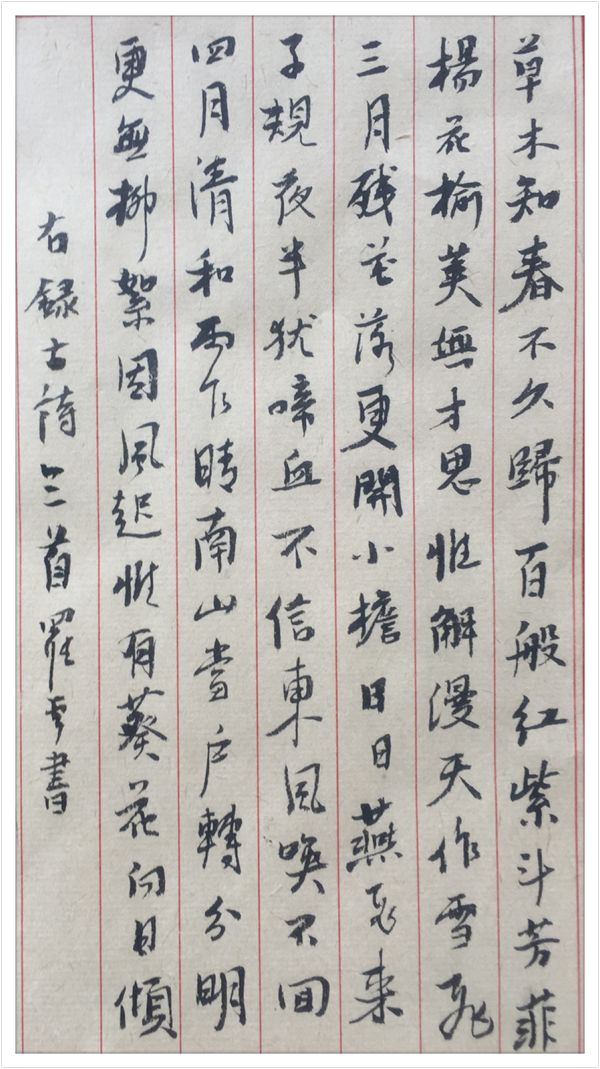 草木知春不久歸百般紅紫斗芳菲
楊花榆荚無才思惟解漫天作雪飛
三月残花落更開小檐日日燕飛来
子規夜半犹啼血不信東風唤不回
四月清和雨乍晴南山當户轉分明
更無柳絮因風起惟有葵花向日傾
右録古詩三首羅書